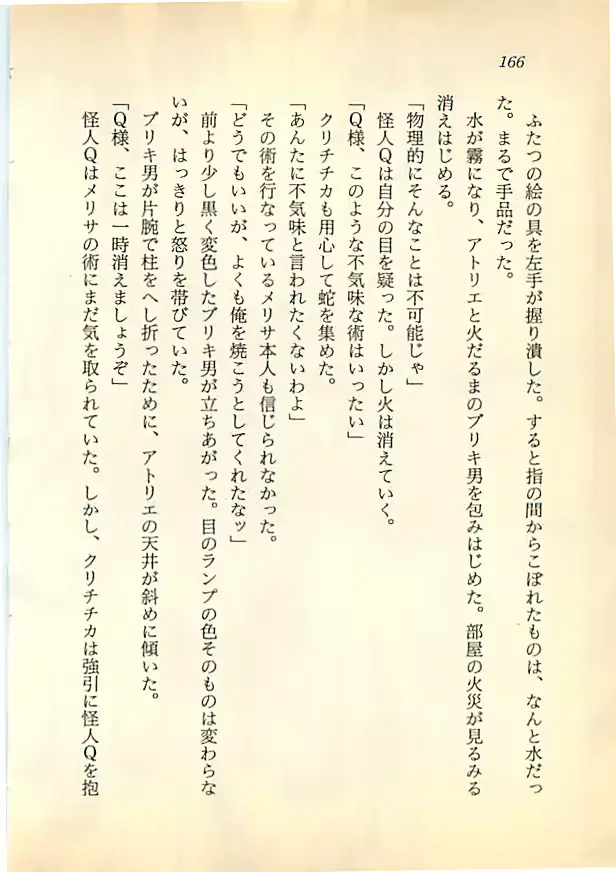 166
ふたつの絵の具を左手が握り潰した。すると指の間からこぼれたものは、なんと水だっ
た。まるで手品だった。
水が霧になり、アトリエと火だるまのブリキ男を包みはじめた。部屋の火災が見るみる
消えはじめる。
「物理的にそんなことは不可能じゃ」
怪人Qは自分の目を疑った。しかし火は消えていく。
「Q様、このような不気味な術はいったい」
クリチチカも用心して蛇を集めた。
「あんたに不気味と言われたくないわよ」
その術を行なっているメリサ本人も信じられなかった。
「どうでもいいが、よくも俺を焼こうとしてくれたなッ」
前より少し黒く変色したブリキ男が立ちあがった。目のランプの色そのものは変わらな
いが、はっきりと怒りを帯びていた。
ブリキ男が片腕で柱をへし折ったために、アトリエの天井が斜めに傾いた。
「Q様、ここは一時消えましょうぞ」
怪人Qはメリサの術にまだ気を取られていた。しかし、クリチチカは強引に怪人Qを抱